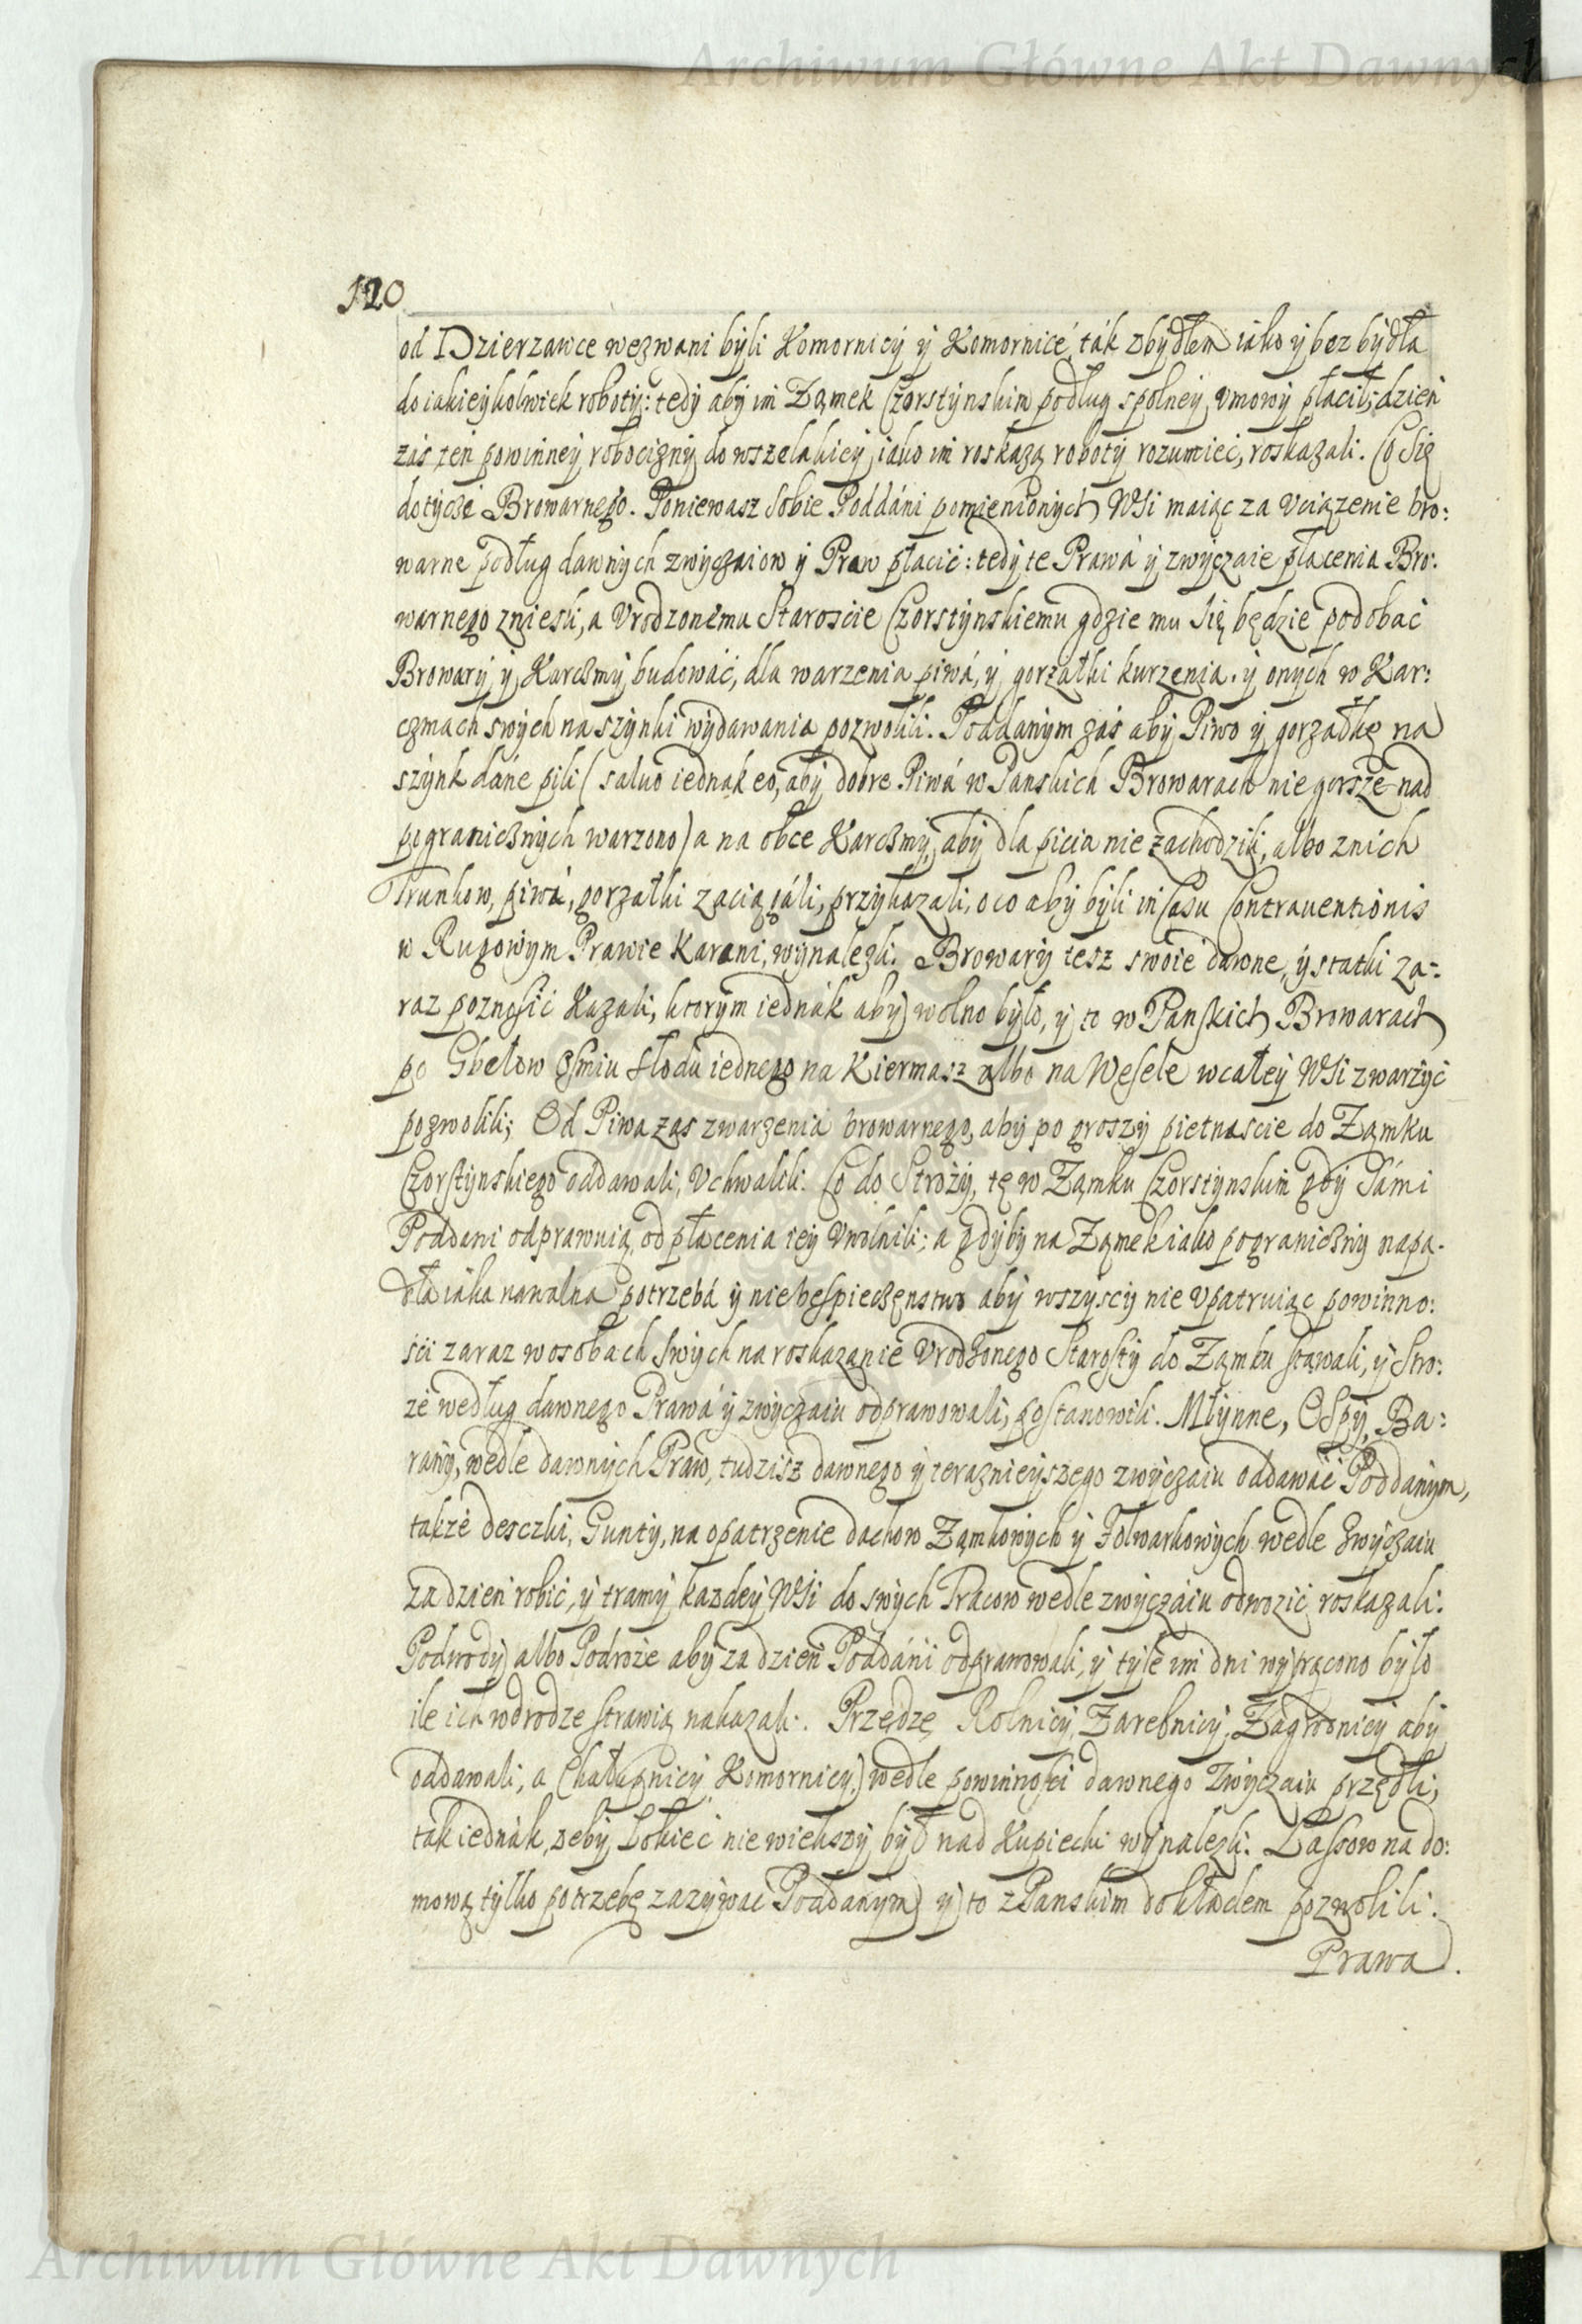 Archiwum Główne Akt Dawnych
120
od Dzierzawce wezwani byli Komornicy y Komornice, ták z bydłem iako y bez bydła
do iakieykolwiek roboty: tedy aby im Zamek Czorstynskim podług spolney vmowy płacił; dzień
záś ten powinney robocizny do wszelakiey iako im roskażą roboty rozumieć, roskazali. Co Się
dotycze Browarnego. Poniewasz Sobie Poddáni pomienionych WSi maiąc za vciązenie bro:
warne podług dawnych zwyczaiow y Praw płacić: tedy te Prawá y zwyczaie płacenia Bro:
warnego znieśli, a Vrodzonemu Staroscie Czorstynskiemu gdzie mu Się będzie podobać
Browary y Karczmy budować, dla warzenia piwá, y gorzałki kurzenia. y onych w Kar:
czmach swych na szynki wydawania pozwolili. Poddanym záś aby Piwo y gorzałkę na
szynk dáne pili (saluo iednak eo, aby dobre Piwá w Panskich Browarach nie gorsze nad
pogranicznych warzono) a na obce Karczmy, aby dla picia nie zachodzili, albo znich
Trunkow, piwá, gorzałki zaciągáli, przykazali, o co aby byli in Casu Contrauentionis
w Rugowym Prawie Karani, wynalezli. Browary tesz swoie dawne, y statki za:
raz poznosić Kazali, ktorym iednák aby wolno było, y to w Panskich Browarach
po Gbełow ośmiu słodu iednego na Kiermasz albo na Wesele wcałey WSi zwarzyć
pozwolili; Od Piwa zas zwarzenia browarnego, aby po groszy pietnascie do Zamku
Czorstynskiego oddawali, Vchwalili. Co do Stroży, tę w Zamku Czorstynskim gdy Sámi
Poddani odprawuią, od płacenia iey Vwolnili; a gdyby na Zamek iako pograniczny napa:
dła iáka nawalna potrzebá y niebespieczenstwo aby wszyscy nie vpatruiąc powinno:
ści zaraz w osobach swych na roskazanie Vrodzonego Starosty do Zamku stawali, y Stro:
że według dawnego Prawá y zwyczaiu odprawowali, postanowili. Młynne, OSpy, Ba:
rany, wedle dawnych Praw, tudzisz dawnego y teraznieyszego zwyczaiu oddawać Poddanym,
także desczki, Gunty, na opatrzenie dachow Zamkowych y Folwarkowych wedle zwyczaiu
za dzień robić, y tramy każdey WSi do swych Tracow wedle zwyczáiu odwozić roskazali.
Podwody albo Podroże aby za dzień Poddáni odprawowali, y tyle im dni wytrącono było
ile ich wdrodze strawią nakazali. Przędze Rolnicy, Zarebnicy, Zagrodnicy aby
oddawali, a Chałupnicy, Komornicy wedle powinności dawnego Zwyczaiu przędli;
tak iednák, żeby Łokieć niewiekszy był nad Kupiecki wynalezli. Lassow na do:
mową tylko potrzebę zazywać Poddanym y to z Panskim dokładem pozwolili.
Prawa.
Archiwum Główne Akt Dawnych